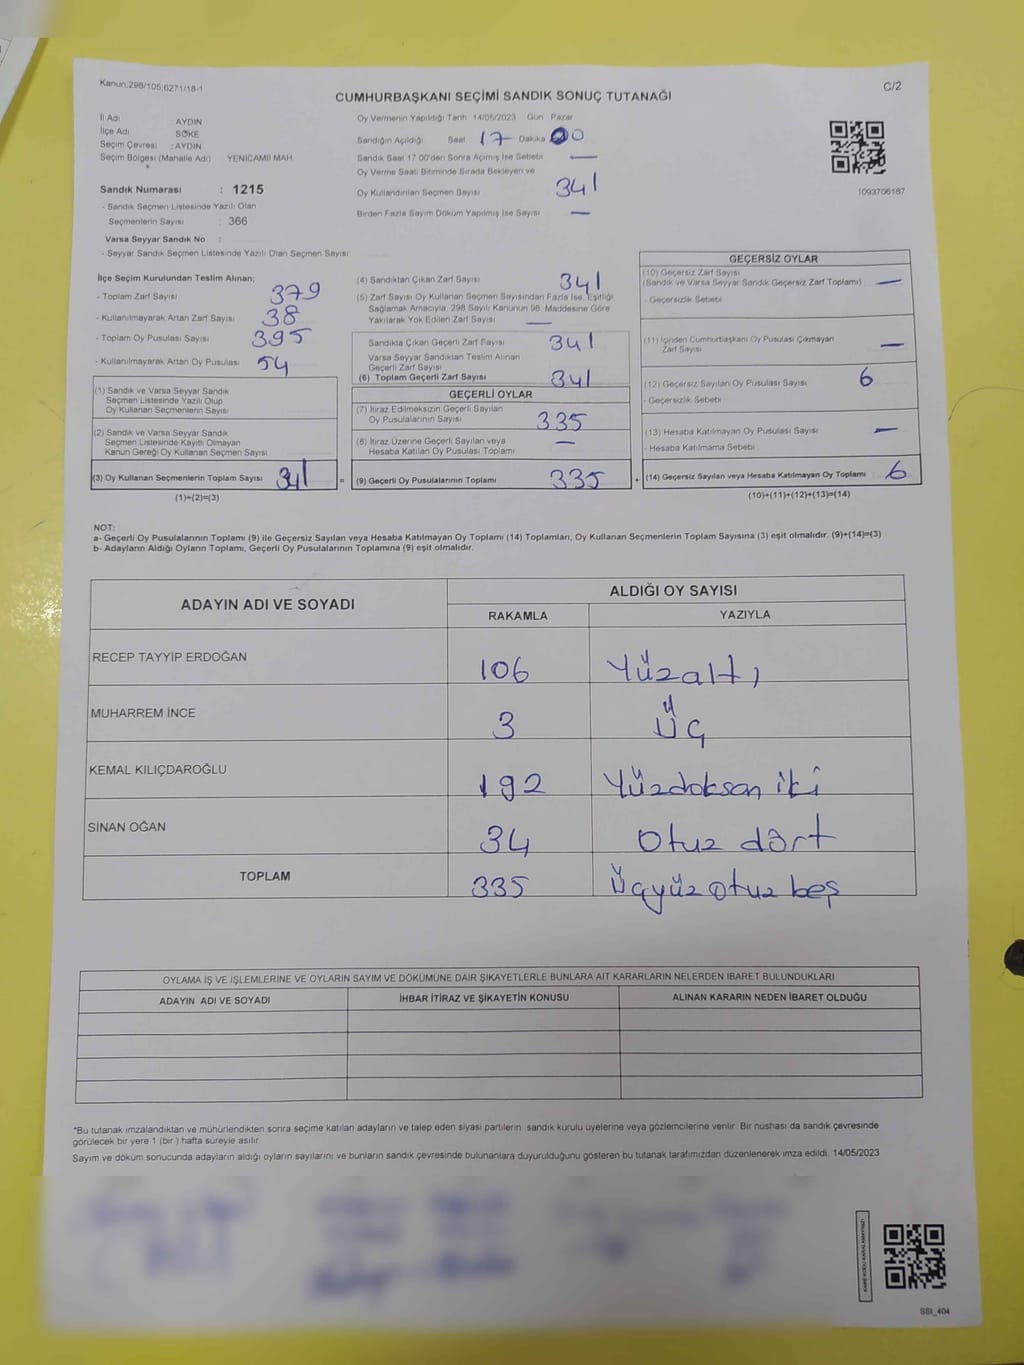 Kanun,298/105,6271/18-1
C/2
CUMHURBAŞKANI SEÇİMİ SANDIK SONUÇ TUTANAĞI
İl Adı : AYDIN
İlçe Adı : SÖKE
Seçim Çevresi : AYDIN
Seçim Bölgesi (Mahalle Adı) : YENİCAMİİ MAH.
Sandık Numarası : 1215
- Sandık Seçmen Listesinde Yazılı Olan
Seçmenlerin Sayısı : 366
Varsa Seyyar Sandık No :
- Seyyar Sandık Seçmen Listesinde Yazılı Olan Seçmen Sayısı
Oy Vermenin Yapıldığı Tarih 14/05/2023 Gün Pazar
Sandığın Açıldığı Saat 17 Dakika 00
Sandık Saat 17.00'den Sonra Açımış İse Sebebi —
Oy Verme Saati Bitiminde Sırada Bekleyen ve
Oy Kullandırılan Seçmen Sayısı 341
Birden Fazla Sayım Döküm Yapılmış İse Sayısı —
1093706187
İlçe Seçim Kurulundan Teslim Alınan;
- Toplam Zarf Sayısı 379
- Kullanılmayarak Artan Zarf Sayısı 38
- Toplam Oy Pusulası Sayısı 395
- Kullanılmayarak Artan Oy Pusulası 54
(1) Sandık ve Varsa Seyyar Sandık
Seçmen Listesinde Yazılı Olup
Oy Kullanan Seçmenlerin Sayısı
(2) Sandık ve Varsa Seyyar Sandık
Seçmen Listesinde Kayıtlı Olmayan
Kanun Gereği Oy Kullanan Seçmen Sayısı
(3) Oy Kullanan Seçmenlerin Toplam Sayısı 341
(1)+(2)=(3)
=
(4) Sandıktan Çıkan Zarf Sayısı 341
(5) Zarf Sayısı Oy Kullanan Seçmen Sayısından Fazla İse, Eşitliği
Sağlamak Amacıyla, 298 Sayılı Kanunun 98. Maddesine Göre
Yakılarak Yok Edilen Zarf Sayısı —
Sandıkta Çıkan Geçerli Zarf Sayısı 341
Varsa Seyyar Sandıktan Teslim Alınan
Geçerli Zarf Sayısı
(6) Toplam Geçerli Zarf Sayısı 341
GEÇERLİ OYLAR
(7) İtiraz Edilmeksizin Geçerli Sayılan
Oy Pusulalarının Sayısı 335
(8) İtiraz Üzerine Geçerli Sayılan veya
Hesaba Katılan Oy Pusulası Toplamı —
(9) Geçerli Oy Pusulalarının Toplamı 335
+
GEÇERSİZ OYLAR
(10) Geçersiz Zarf Sayısı
(Sandık ve Varsa Seyyar Sandık Geçersiz Zarf Toplamı) —
- Geçersizlik Sebebi
(11) İçinden Cumhurbaşkanı Oy Pusulası Çıkmayan
Zarf Sayısı —
(12) Geçersiz Sayılan Oy Pusulası Sayısı 6
- Geçersizlik Sebebi
(13) Hesaba Katılmayan Oy Pusulası Sayısı —
- Hesaba Katılmama Sebebi
(14) Geçersiz Sayılan veya Hesaba Katılmayan Oy Toplamı 6
(10)+(11)+(12)+(13)=(14)
NOT:
a- Geçerli Oy Pusulalarının Toplamı (9) ile Geçersiz Sayılan veya Hesaba Katılmayan Oy Toplamı (14) Toplamları, Oy Kullanan Seçmenlerin Toplam Sayısına (3) eşit olmalıdır. (9)+(14)=(3)
b- Adayların Aldığı Oyların Toplamı, Geçerli Oy Pusulalarının Toplamına (9) eşit olmalıdır.
ADAYIN ADI VE SOYADI ALDIĞI OY SAYISI
RAKAMLA YAZIYLA
RECEP TAYYİP ERDOĞAN 106 Yüzaltı
MUHARREM İNCE 3 Üç
KEMAL KILIÇDAROĞLU 192 Yüzdoksan iki
SİNAN OĞAN 34 Otuz dört
TOPLAM 335 Üçyüz otuz beş
OYLAMA İŞ VE İŞLEMLERİNE VE OYLARIN SAYIM VE DÖKÜMÜNE DAİR ŞİKAYETLERLE BUNLARA AİT KARARLARIN NELERDEN İBARET BULUNDUKLARI
ADAYIN ADI VE SOYADI İHBAR İTİRAZ VE ŞİKAYETİN KONUSU ALINAN KARARIN NEDEN İBARET OLDUĞU
*Bu tutanak imzalandıktan ve mühürlendikten sonra seçime katılan adayların ve talep eden siyasi partilerin sandık kurulu üyelerine veya gözlemcilerine verilir. Bir nüshası da sandık çevresinde
görülecek bir yere 1 (bir ) hafta süreyle asılır.
Sayım ve döküm sonucunda adayların aldığı oyların sayılarını ve bunların sandık çevresinde bulunanlara duyurulduğunu gösteren bu tutanak tarafımızdan düzenlenerek imza edildi. 14/05/2023
KARE KODU KARALAMAYINIZ!
SSI_404